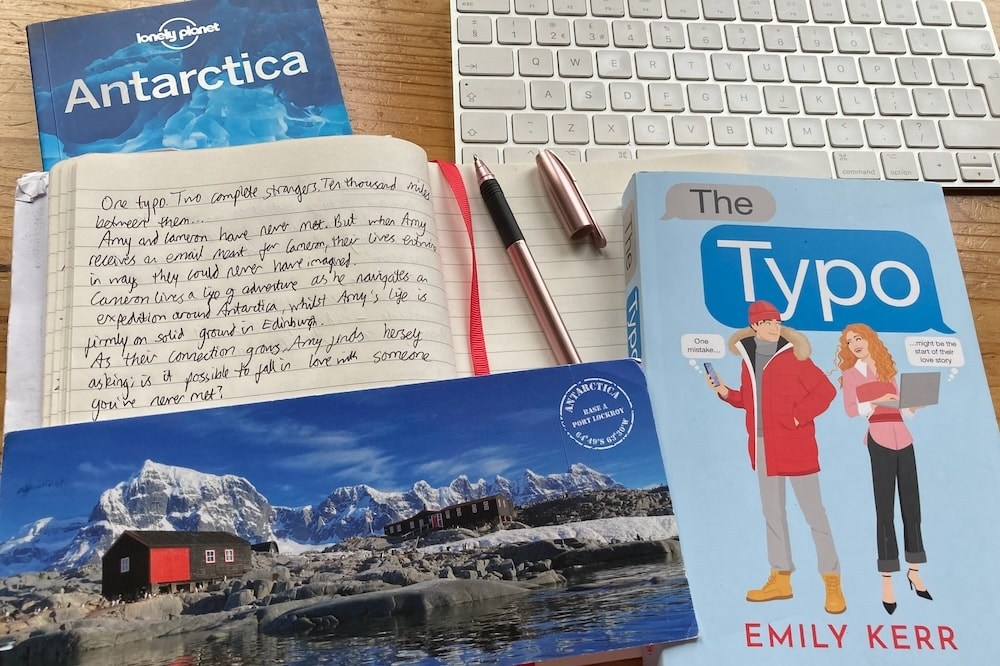 lonely planet
Antarctica
One typo. Two complete strangers. Ten thousand miles
between them...
Amy and Cameron have never met. But when Amy
receives an email meant for Cameron, their lives entwine
in ways they could never have imagined.
Cameron lives a life of adventure as he navigates an
expedition around Antarctica, whilst Amy's life is
firmly on solid ground in Edinburgh.
As their connection grows, Amy finds herself
asking: is it possible to fall in love with someone
you've never met?
ANTARCTICA
BASE A
PORT LOCKROY
64°49'S 63°30'W
The
Typo
The
Typo
One
mistake...
...might be the
start of their
love story
EMILY KERR
Q W E R T Y U I O P
A S D F G H J K L
Z X C V B N M
command option